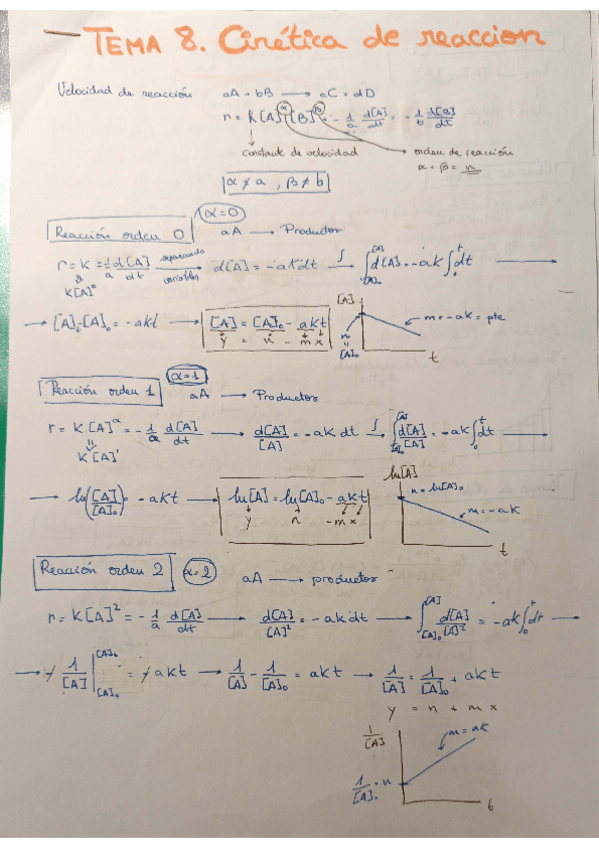 TEMA 8. Cinética de reaccion
Velocidad de reacción aA + bB → cC + dD
r = K[A]^α [B]^β = -1/a d[A]/dt = -1/b d[B]/dt
constante de velocidad orden de reacción
α + β = n
α ≠ a, β ≠ b
Reacción orden 0 α=0 aA → Productos
r = K = -1/a d[A]/dt separando variables → d[A] = -aKdt ∫→ ∫_[A]₀^[A] d[A] = -aK ∫_0^t dt →
K[A]⁰
→ [A]-[A]₀ = -aKt → [A] = [A]₀ - aKt
y = n - m x
[A] n = [A]₀ m = -aK = pte t
Reacción orden 1 α=1 aA → Productos
r = K[A]^α = -1/a d[A]/dt → d[A]/[A] = -aK dt ∫→ ∫_[A]₀^[A] d[A]/[A] = -aK ∫_0^t dt →
K[A]¹
→ ln([A]/[A]₀) = -aKt → ln[A] = ln[A]₀ - aKt
y n -m x
ln[A] n = ln[A]₀ m = -aK t
Reacción orden 2 α=2 aA → productos
r = K[A]² = -1/a d[A]/dt → d[A]/[A]² = -aKdt → ∫_[A]₀^[A] d[A]/[A]² = -aK ∫_0^t dt →
→ -1/[A] |_[A]₀^[A]₀ = -aKt → 1/[A] - 1/[A]₀ = aKt → 1/[A] = 1/[A]₀ + aKt
y = n + m x
1/[A] m = aK
1/[A]₀ = n
t